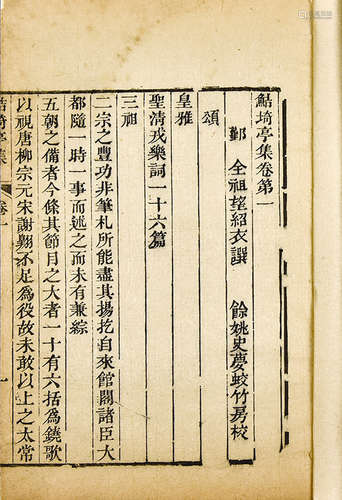 鮚埼亭集卷第一
鄞 全祖望紹衣譔 餘姚史夢蛟竹房校
頌
皇雅
聖清戎樂詞一十六篇
三祖
二宗之豐功非筆札所能盡其揚扢自來館閣諸臣大
都隨一時一事而述之而未有兼綜
五朝之備者今條其節目之大者一十有六括爲鐃歌
以視唐柳宗元宋謝翺不足爲役故未敢以上之太常
鮚埼亭集 卷一 一